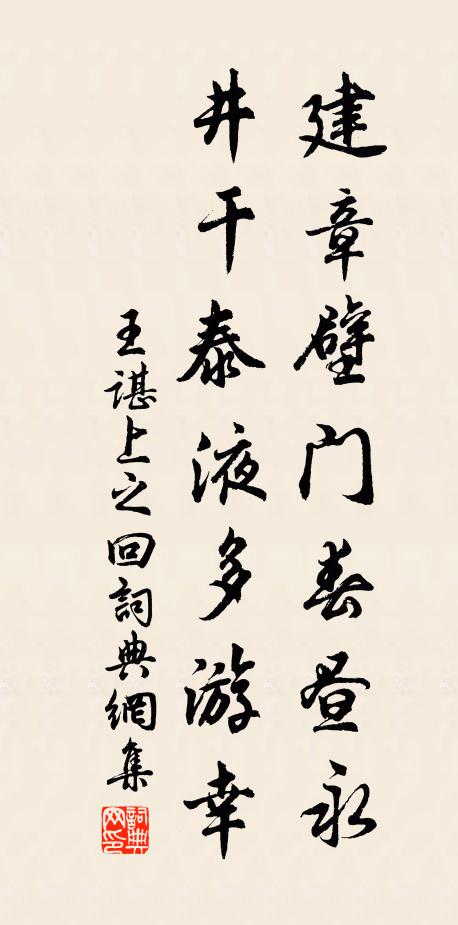 建章壁门春昼永
井干泰液多游幸
王谌上之回詞典網集
詞典网印